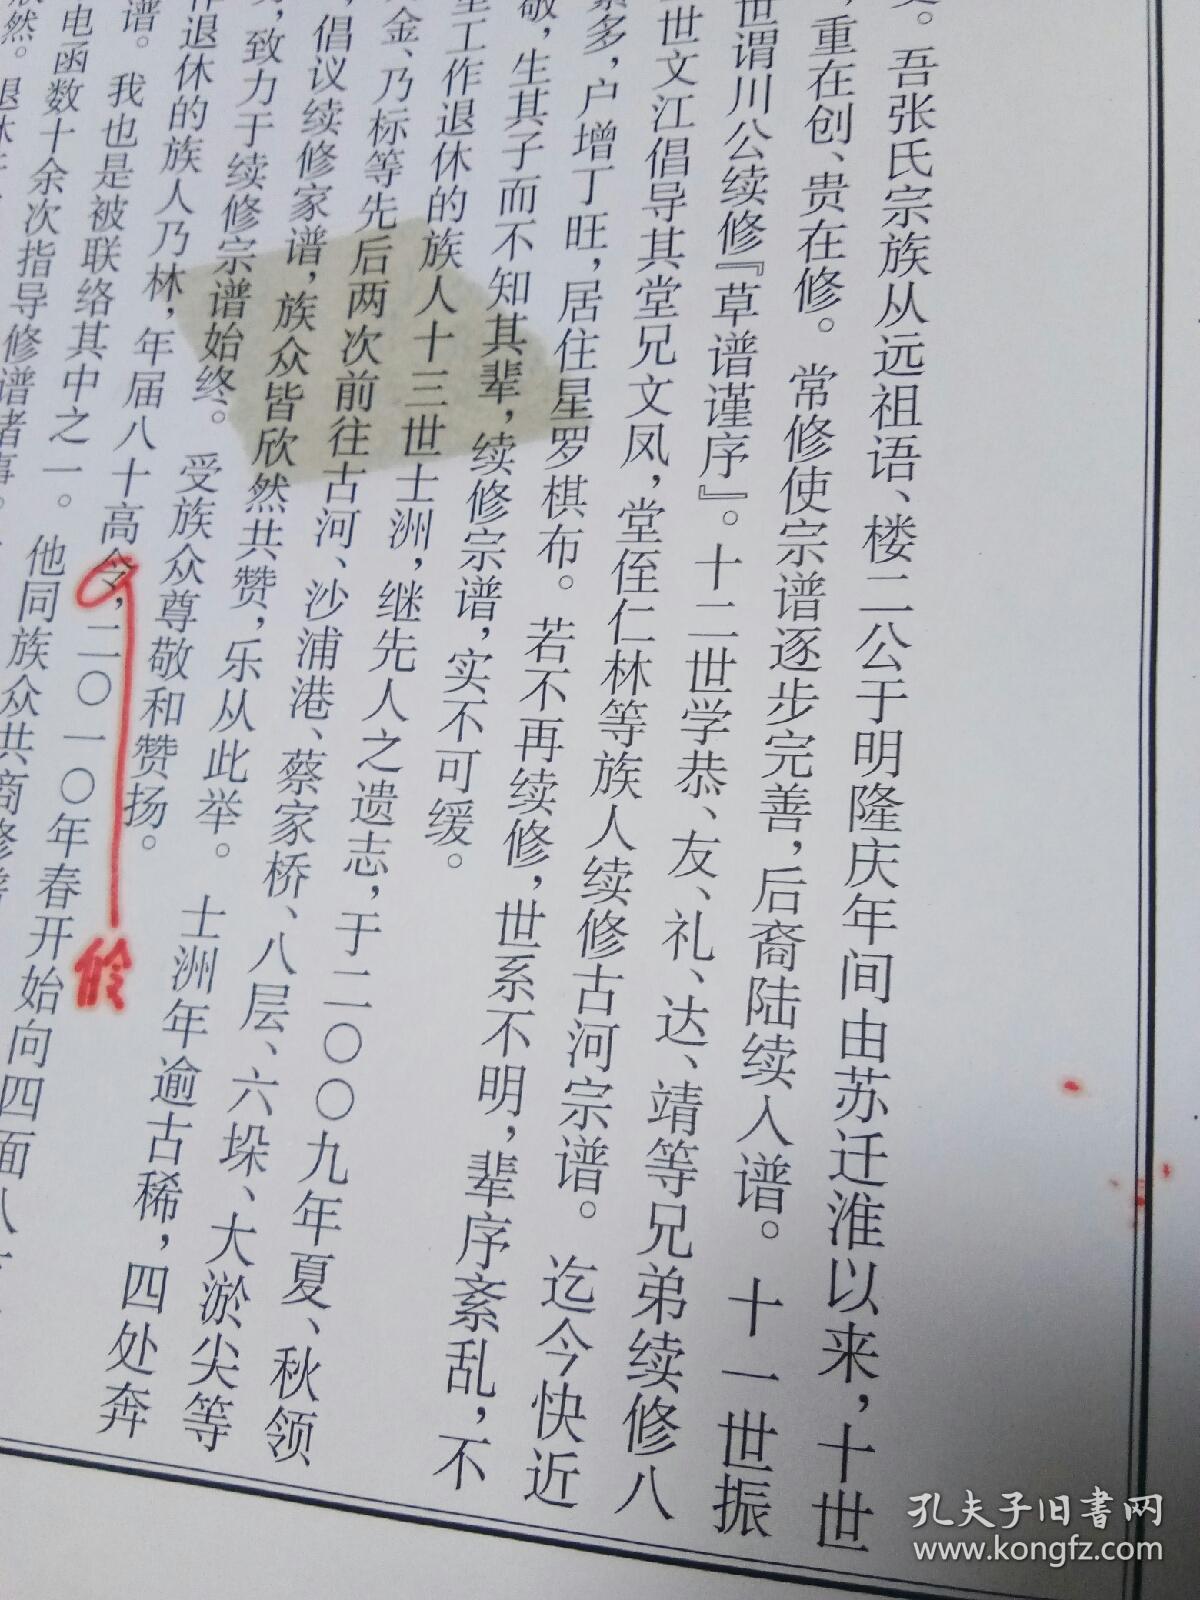 。吾张氏宗族从远祖语、楼二公于明隆庆年间由苏迁淮以来，十世
，重在创、贵在修。常修使宗谱逐步完善，后裔陆续入谱。十一世振
世谓川公续修『草谱谨序』。十二世学恭、友、礼、达、靖等兄弟续修八
世文江倡导其堂兄文凤，堂侄仁林等族人续修古河宗谱。迄今快近
多，户增丁旺，居住星罗棋布。若不再续修，世系不明，辈序紊乱，不
敬，生其子而不知其辈，续修宗谱，实不可缓。
工作退休的族人十三世士洲，继先人之遗志，于二〇〇九年夏、秋领
金、乃标等先后两次前往古河、沙浦港、蔡家桥、八层、六垛、大淤尖等
，倡议续修家谱，族众皆欣然共赞，乐从此举。士洲年逾古稀，四处奔
，致力于续修宗谱始终。受族众尊敬和赞扬。
退休的族人乃林，年届八十高令，二〇一〇年春开始向四面八
谱。我也是被联络其中之一。他同族众共商修
电函数十余次指导修谱诸事。
然。退休
龄
孔夫子旧书网
www.kongfz.com